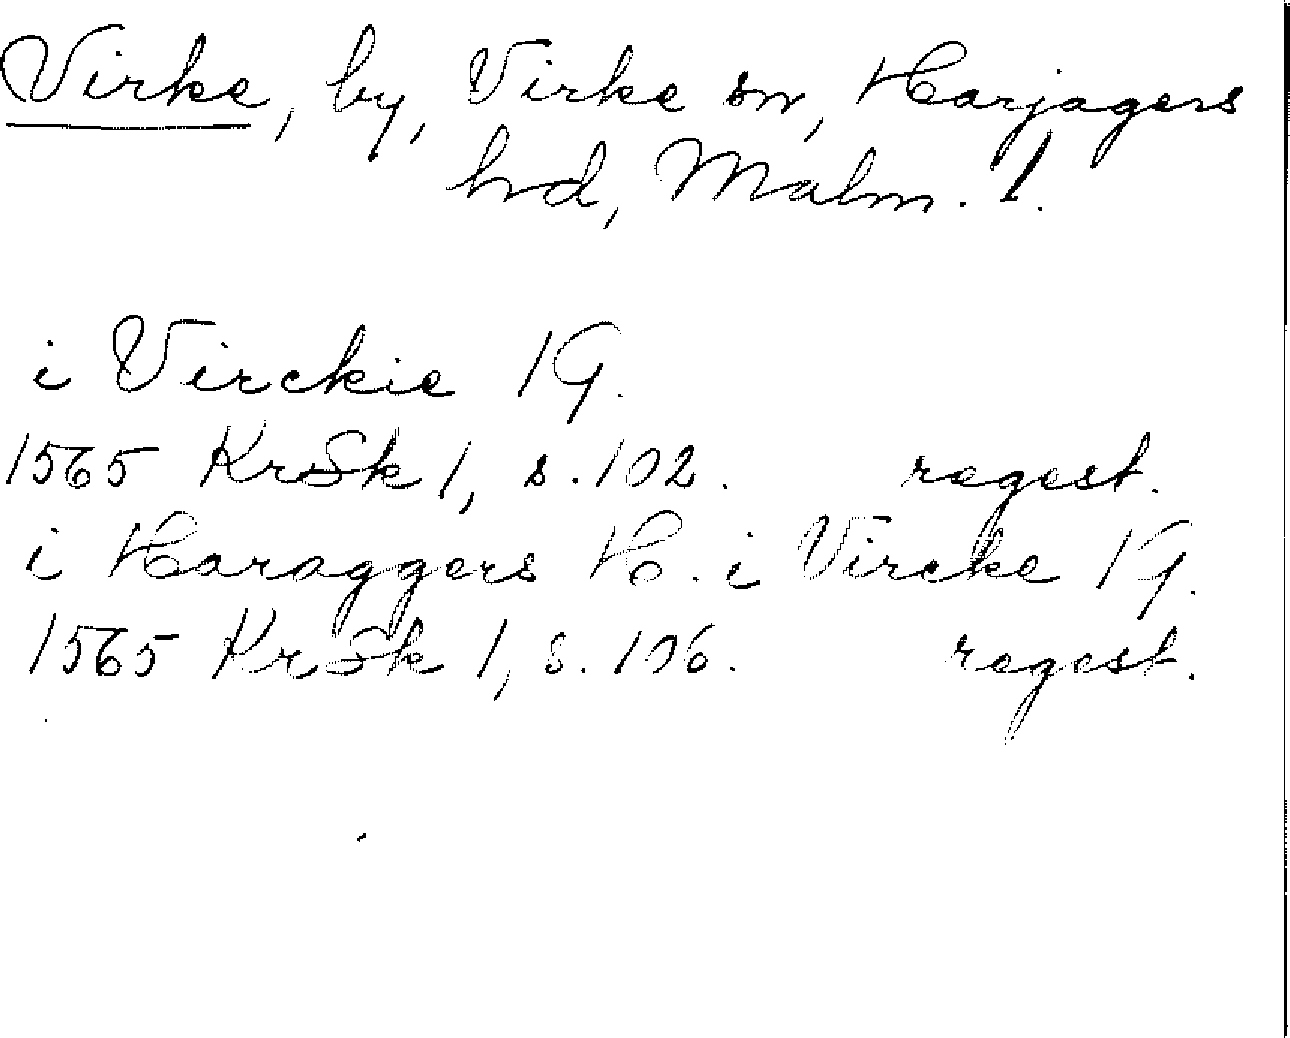 Virke, by, Virke sn, Harjagers
hd, Malm. l.
i Virckie 1G.
1565 KrSk 1, s. 102. regest.
i Haraggers H. i Vircke 1G.
1565 KrSk 1, s. 106. regest.